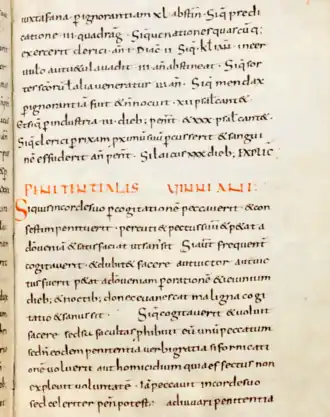 iuxta sana. p ignorantiam xl abstin. Siq̄ predi
catione. iii. quadrag̃. Siq̄ uenationes quascuq;
exercerit clerici. an̄ i. Diac̄ ii. Siq̄
uulo aut in & uadit. iii. an̄ abstineat. Siq̄
Siq̄ mendax
p ignorantia fuit & n̄ nocuit. xii psal cant&
& siq̄ p industria iii. dieb; penit̄. & xxx psal cant&.
Siq̄ clerici p rixam pximū suū pcusserit & sangui
nē effuderit an̄ penit̄. Si laicus xxx dieb; EXPLIC̄.
PENITENTIALIS VINNIANI:
Siquis in corde suo p cogitationē peccauerit & con
festim penituerit. percuti& pectus suū & p&at a
dō ueniā & satisfaciat ut san' sit Si aut̄ frequent̄
cogitauerit. & dubit& facere aut uictor aut uic
tus fuerit p&at a dō ueniam p orationē & ieiuniū
dieb; & noctib; donec euanescat maligna cogi
tatio & san' sit. Siq̄ cogitauerit & uoluit
facere sed facultas phibuit eū unū peccatum
sed n̄ eodem penitentia uerbi gratia si fornicati
onē uoluerit aut homicidium quia effectus non
expleuit uoluntatē. iā peccauit in corde suo
sed celeriter penit̄ potest: adiuuari penitentia